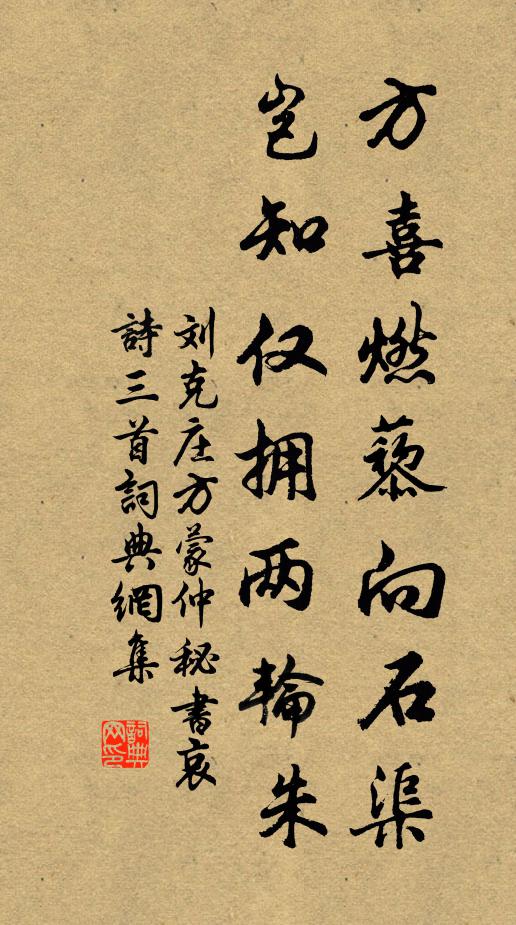 方喜燃藜向石渠
岂知仅拥两輪朱
刘克庄方蒙仲秘書哀
詩三首詞典網集
詞典
网印